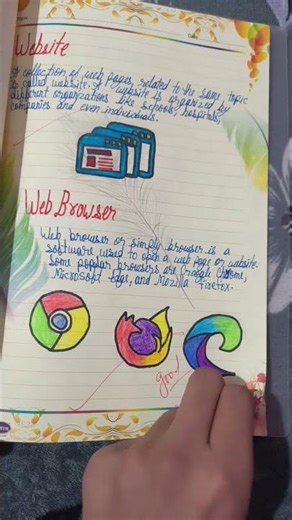 Website
A collection of web pages, related to the same topic
is called website. website is organized by
different organizations like schools, hospitals,
companies and even individuals.
Web Browser
Web browser or simply browser is a
software used to open a web page or website.
Some popular browsers are Google Chrome,
Microsoft Edge, and Mozilla Firefox.
good